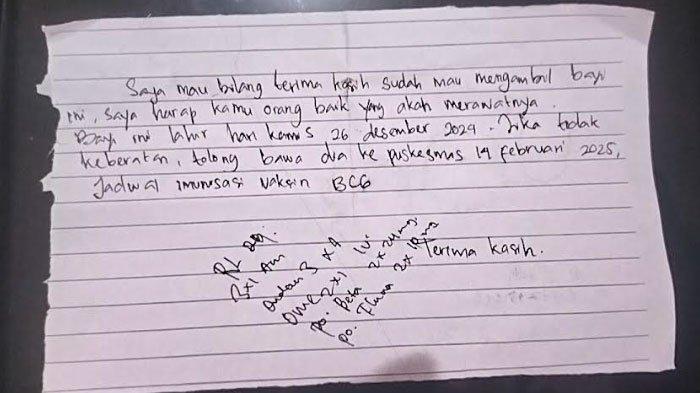 Saya mau bilang terima kasih sudah mau mengambil bayi
ini, saya harap kamu orang baik yang akan merawatnya.
Bayi ini lahir hari kamis 26 desember 2024. Jika tidak
keberatan, tolong bawa dia ke puskesmas 14 februari 2025,
Jadwal imunisasi vaksin BCG
Terima kasih.
RL 20
3x1 Am
Ondan 3 x 4
OME 2x1 IV.
po. Beta 2x24mg
po. Fluna 2x10mg